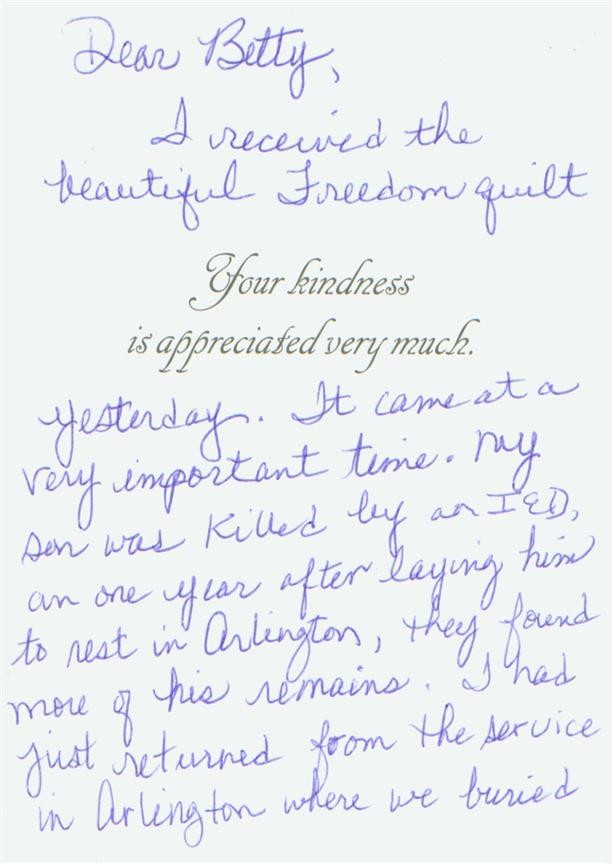 Dear Betty,
I received the
beautiful Freedom quilt
Your kindness
is appreciated very much.
yesterday. It came at a
very important time. My
son was killed by an IED,
an one year after laying him
to rest in Arlington, they found
more of his remains. I had
just returned from the service
in Arlington where we buried